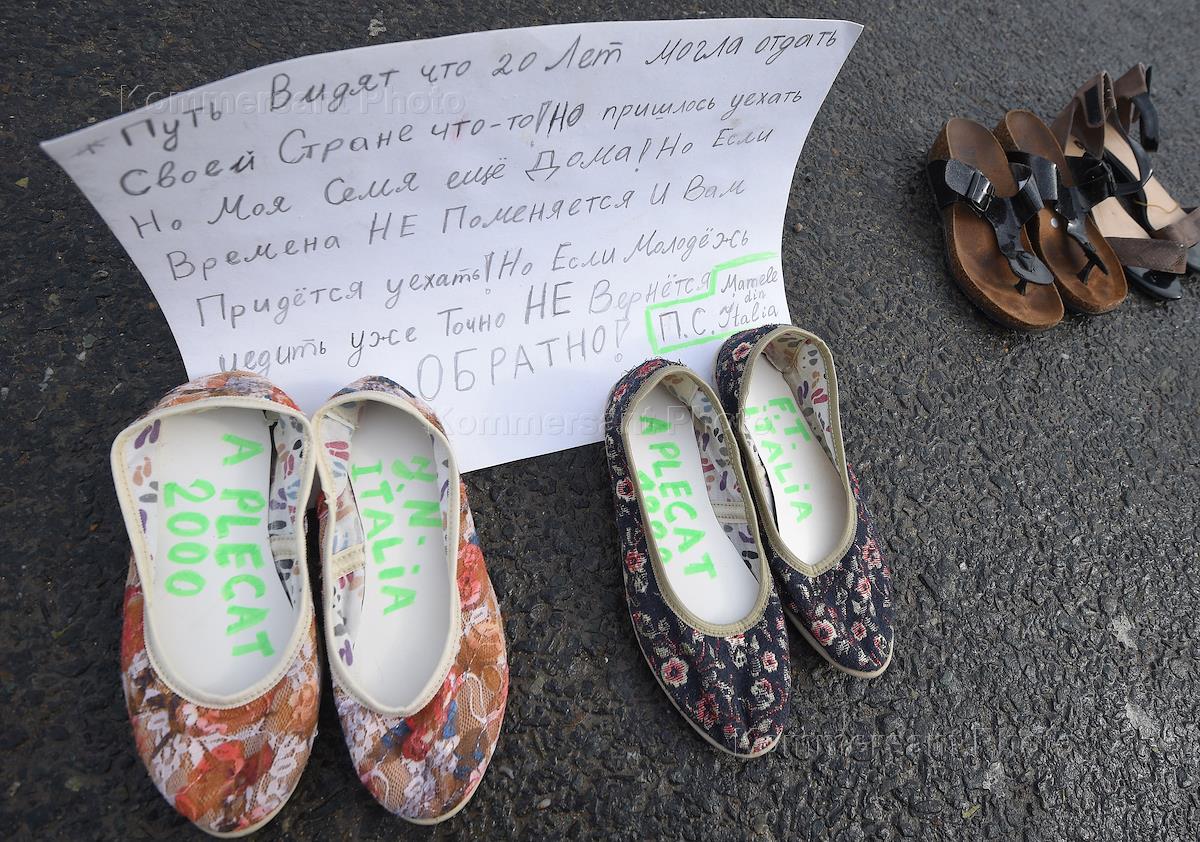 * Путь Видят что 20 Лет могла отдать
Своей Стране что-то! НО пришлось уехать
Но Моя Семя ещё Дома! Но Если
Времена НЕ Поменяется И Вам
Придётся уехать! Но Если Молодёжь
уедить уже Точно НЕ Вернётся
ОБРАТНО!
П.С. Mamele
din
Italia
A PLECAT
2000
ÎN
ITALIA
A PLECAT
ÎT-
ITALIA
Kommersant Photo
Kommersant Photo
Kommersant Photo